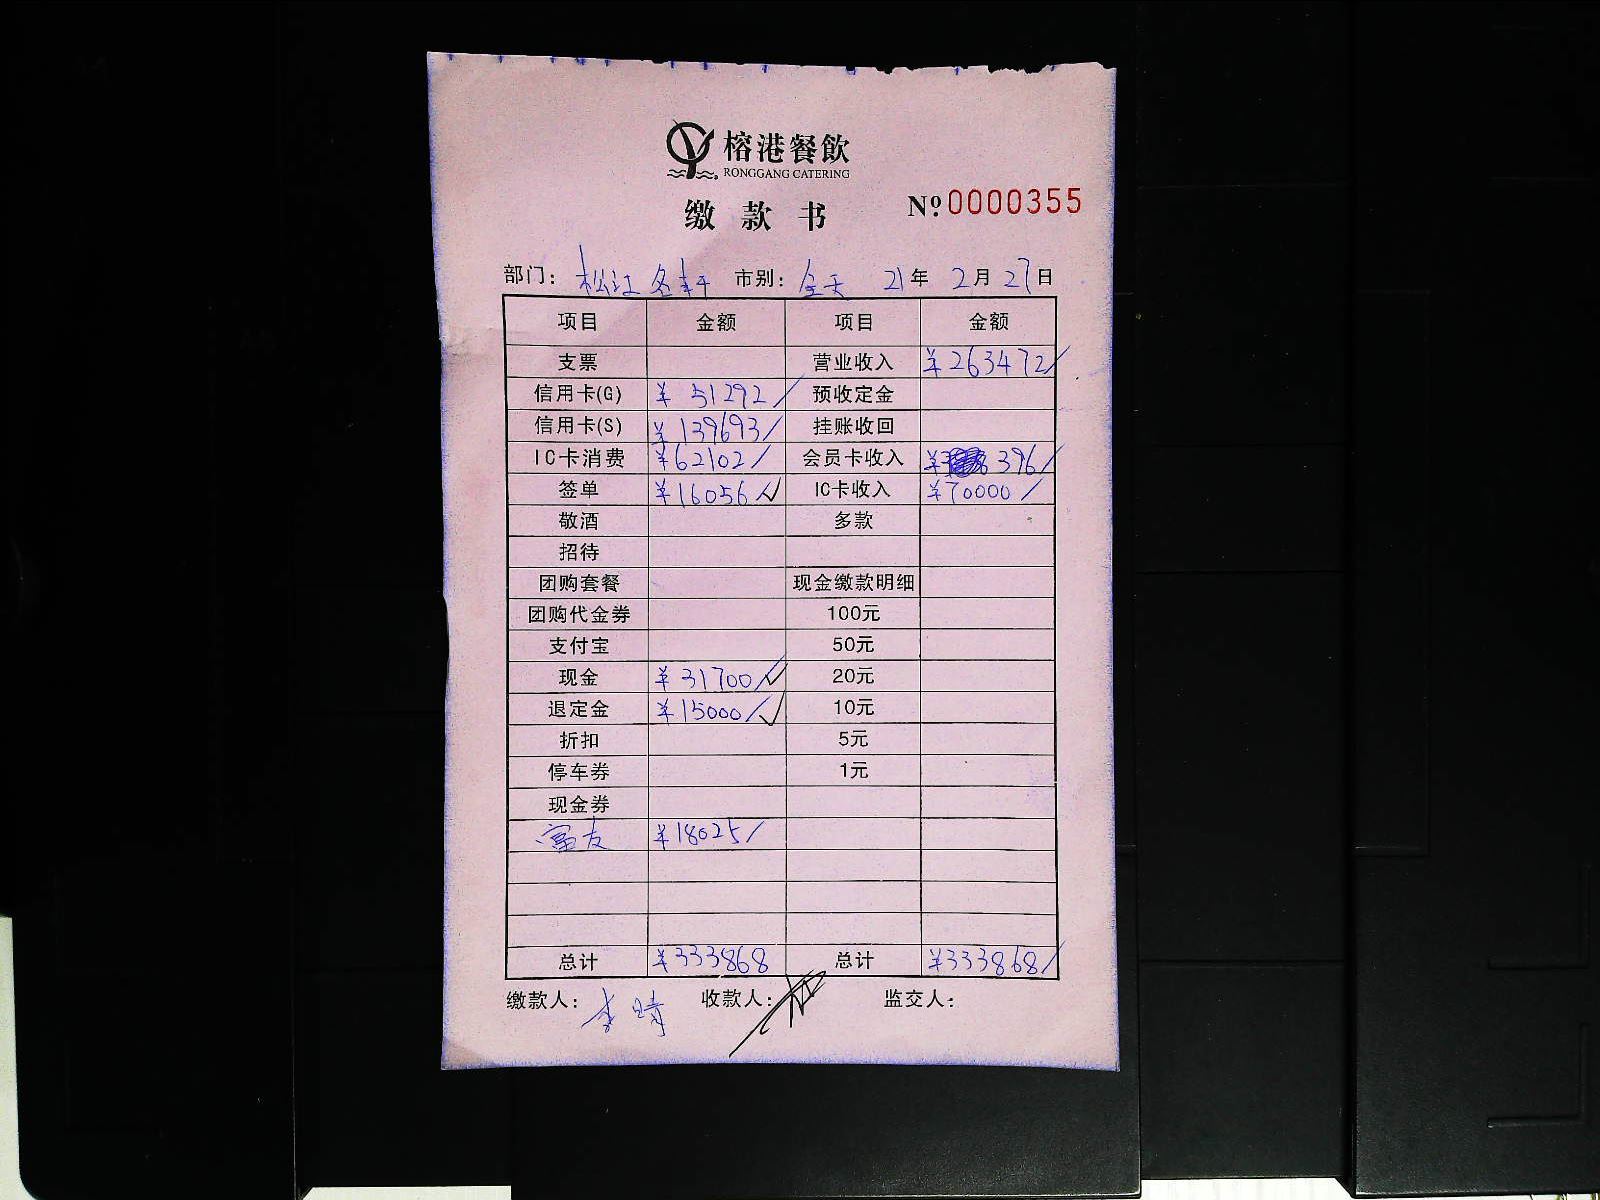 榕港餐飲
RONGGANG CATERING
缴款书
№0000355
部门: 松江名轩 市别: 全天 21年 2月 27日
项目 金额 项目 金额
支票 营业收入 ¥263472
信用卡(G) ¥51292 预收定金
信用卡(S) ¥139693 挂账收回
IC卡消费 ¥62102 会员卡收入 ¥396
签单 ¥16056 IC卡收入 ¥70000
敬酒 多款
招待
团购套餐 现金缴款明细
团购代金券 100元
支付宝 50元
现金 ¥31700 20元
退定金 ¥15000 10元
折扣 5元
停车券 1元
现金券
富友 ¥18025
总计 ¥333868 总计 ¥333868
缴款人: 李晴 收款人: 监交人: